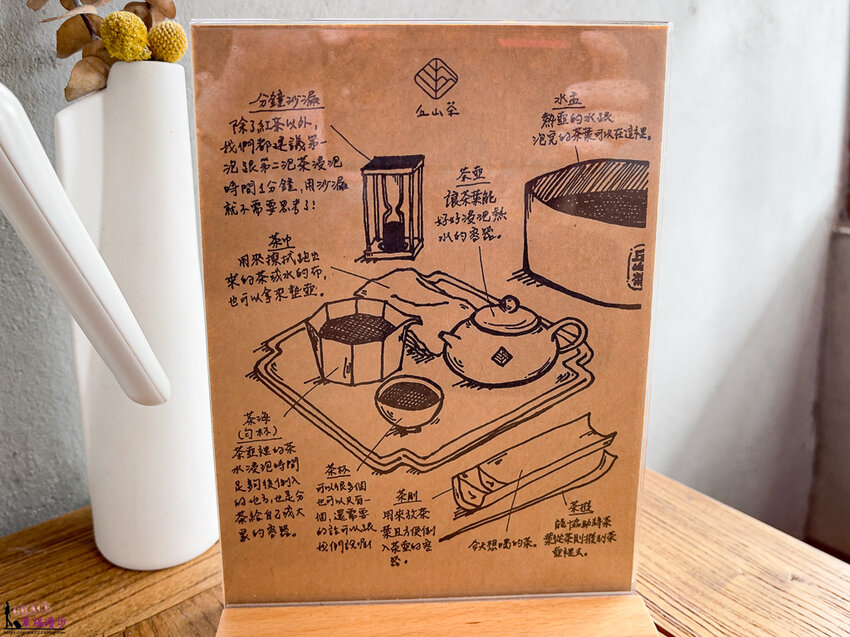 丘山茶
分鐘沙漏
除了紅茶以外,
我們都建議第一
泡跟第二泡茶浸泡
時間1分鐘,用沙漏
就不需要思考了!
水盂
熱壺的水跟
泡完的茶葉可以在這裡。
茶壺
讓茶葉能
好好浸泡熱
水的容器。
茶巾
用來擦拭跑出
來的茶或水的布,
也可以拿來墊壺。
丘山茶
茶海
(勻杯)
茶壺裡的茶
水浸泡時間
足夠後倒入
的地方,也是分
茶給自己或大
家的容器。
茶杯
可以很多個
也可以只有一
個,還需要
的話可以跟
我們說喔!
茶則
用來放茶
葉且方便倒
入茶壺的容
器。
今天想喝的茶。
能協助將茶
葉從茶則撥到茶
壺裡面。
幸福漫步